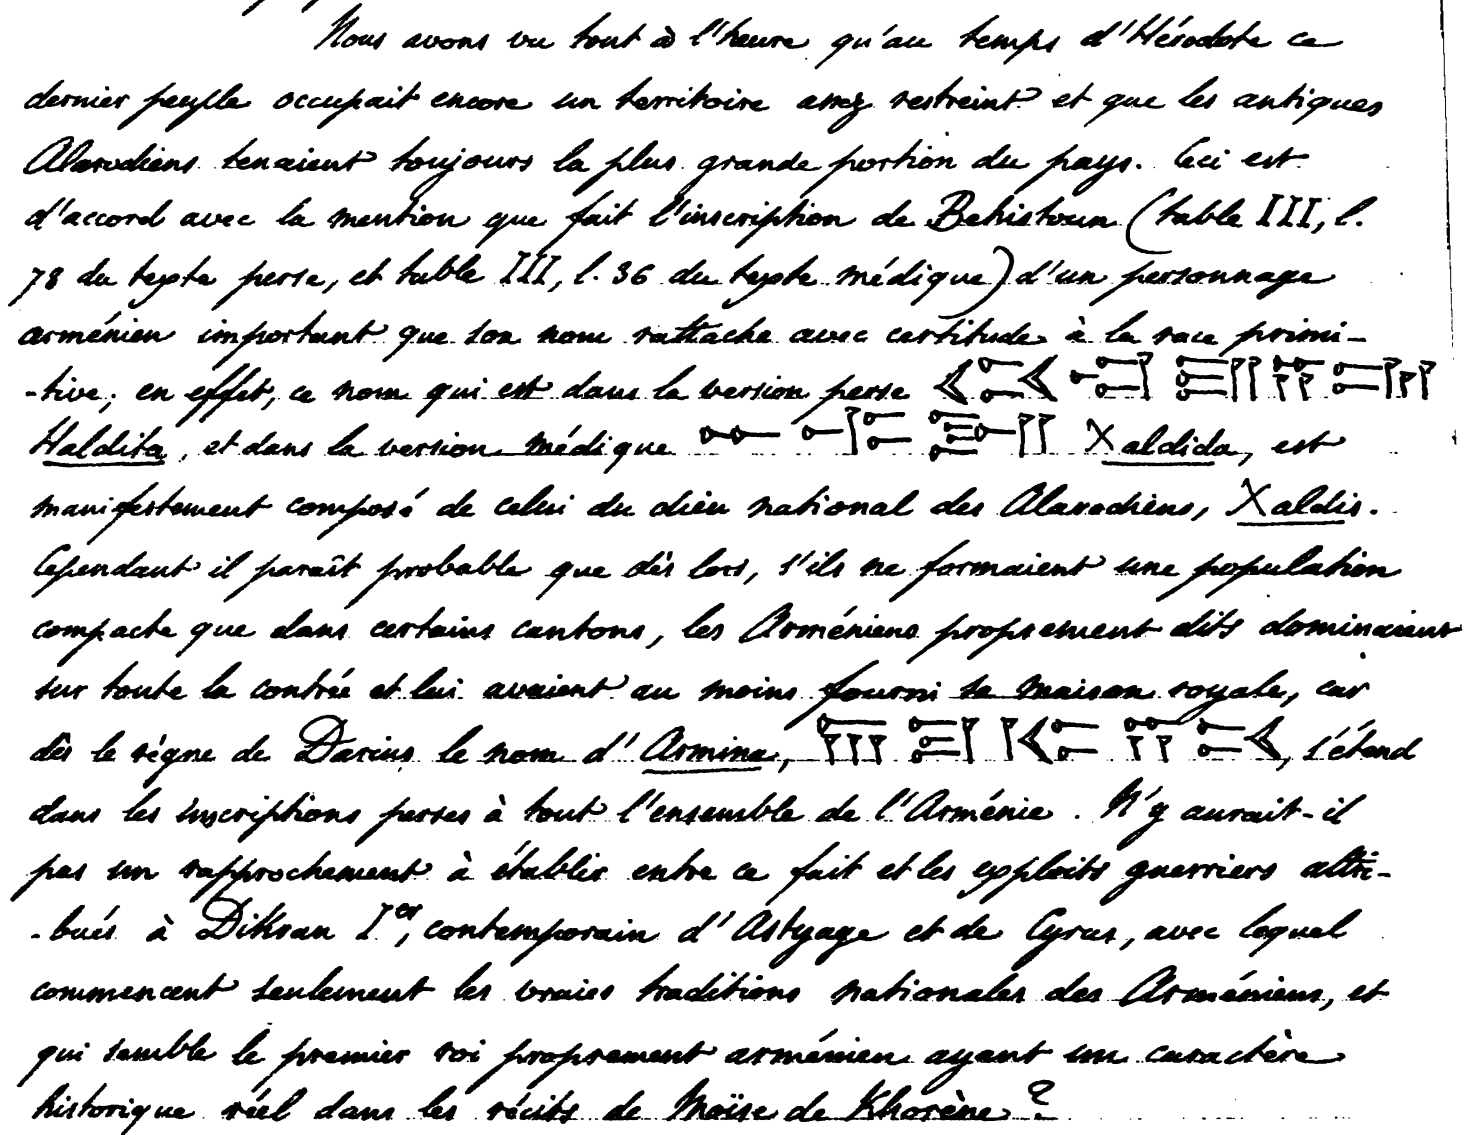 Nous avons vu tout à l'heure qu'au temps d'Hérodote ce
dernier peuple occupait encore un territoire assez restreint et que les antiques
Alarodiens tenaient toujours la plus grande portion du pays. Ceci est
d'accord avec la mention que fait l'inscription de Behistoun (table III, l.
78 du texte perse, et table III, l. 36 du texte médique) d'un personnage
arménien important que son nom rattache avec certitude à la race primi-
-tive; en effet, ce nom qui est dans la version perse 𐏃𐎾𐎮𐎡𐎫
Haldita, et dans la version médique Xaldida, est
manifestement composé de celui du dieu national des Alarodiens, Xaldis.
Cependant il paraît probable que dès lors, s'ils ne formaient une population
compacte que dans certains cantons, les Arméniens proprement dits dominaient
sur toute la contrée et lui avaient au moins fourni sa maison royale, car
dès le règne de Darius le nom d'Armina, 𐎠𐎼𐎷𐎡𐎴, s'étend
dans les inscriptions perses à tout l'ensemble de l'Arménie. N'y aurait-il
pas un rapprochement à établir entre ce fait et les exploits guerriers attri-
-bués à Dikran Ier, contemporain d'Astyage et de Cyrus, avec lequel
commencent seulement les vraies traditions nationales des Arméniens, et
qui semble le premier roi proprement arménien ayant un caractère
historique réel dans les récits de Moïse de Khorène ?